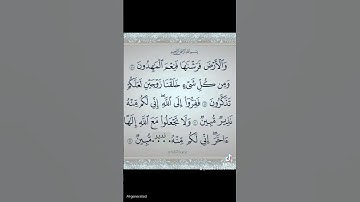 وَالْأَرْضَ فَرَشْنَاهَا فَنِعْمَ الْمَاهِدُونَ
وَمِن كُلِّ شَيْءٍ خَلَقْنَا زَوْجَيْنِ لَعَلَّكُمْ
تَذَكَّرُونَ فَفِرُّوا إِلَى اللَّهِ إِنِّي لَكُم مِّنْهُ
نَذِيرٌ مُّبِينٌ وَلَا تَجْعَلُوا مَعَ اللَّهِ إِلَٰهًا
ءَاخَرَ إِنِّي لَكُم مِّنْهُ نَذِيرٌ مُّبِينٌ